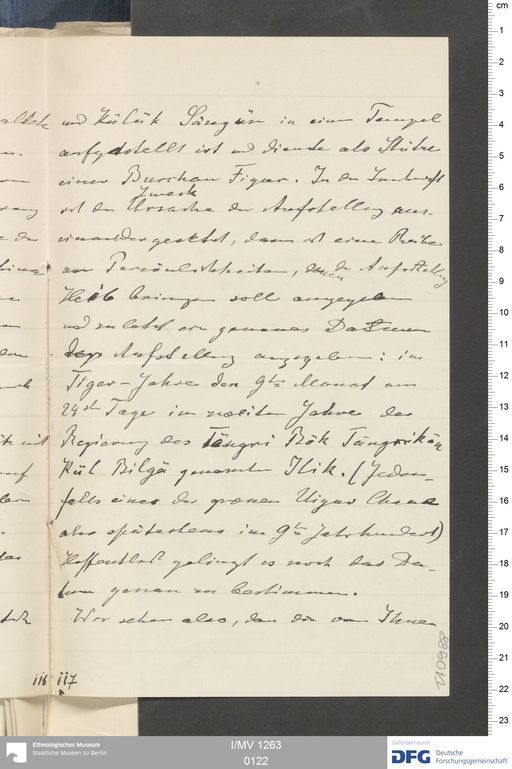 und Külük Sängün in einem Tempel
aufgestellt ist und diente als Stütze
einer Burchan Figur. In der Inschrift
Zweck
ist der Ursache der Aufstellung aus-
einandergesetzt, dann ist eine Reihe
von Persönlichkeiten, denen die Aufstellung
Heil bringen soll angegeben
und zuletzt ein genaues Datum
der Aufstellung angegeben: im
Tiger-Jahre den 9ten Monat am
24sten Tage im zweiten Jahre der
Regierung des Tängri Bök Tängrikän
Kül Bilgä genannten Ilik. (Jeden-
falls eines der grossen Uigur Chane
also spätestens im 9ten Jahrhundert)
Hoffentlich gelingt es noch das Da-
tum genau zu bestimmen.
Wir sehen also, dass die von Ihnen
116 117
1/10988
Ethnologisches Museum
Staatliche Museen zu Berlin
I/MV 1263
0122
Gefördert durch
DFG Deutsche
Forschungsgemeinschaft
cm
1
2
3
4
5
6
7
8
9
10
11
12
13
14
15
16
17
18
19
20
21
22
23